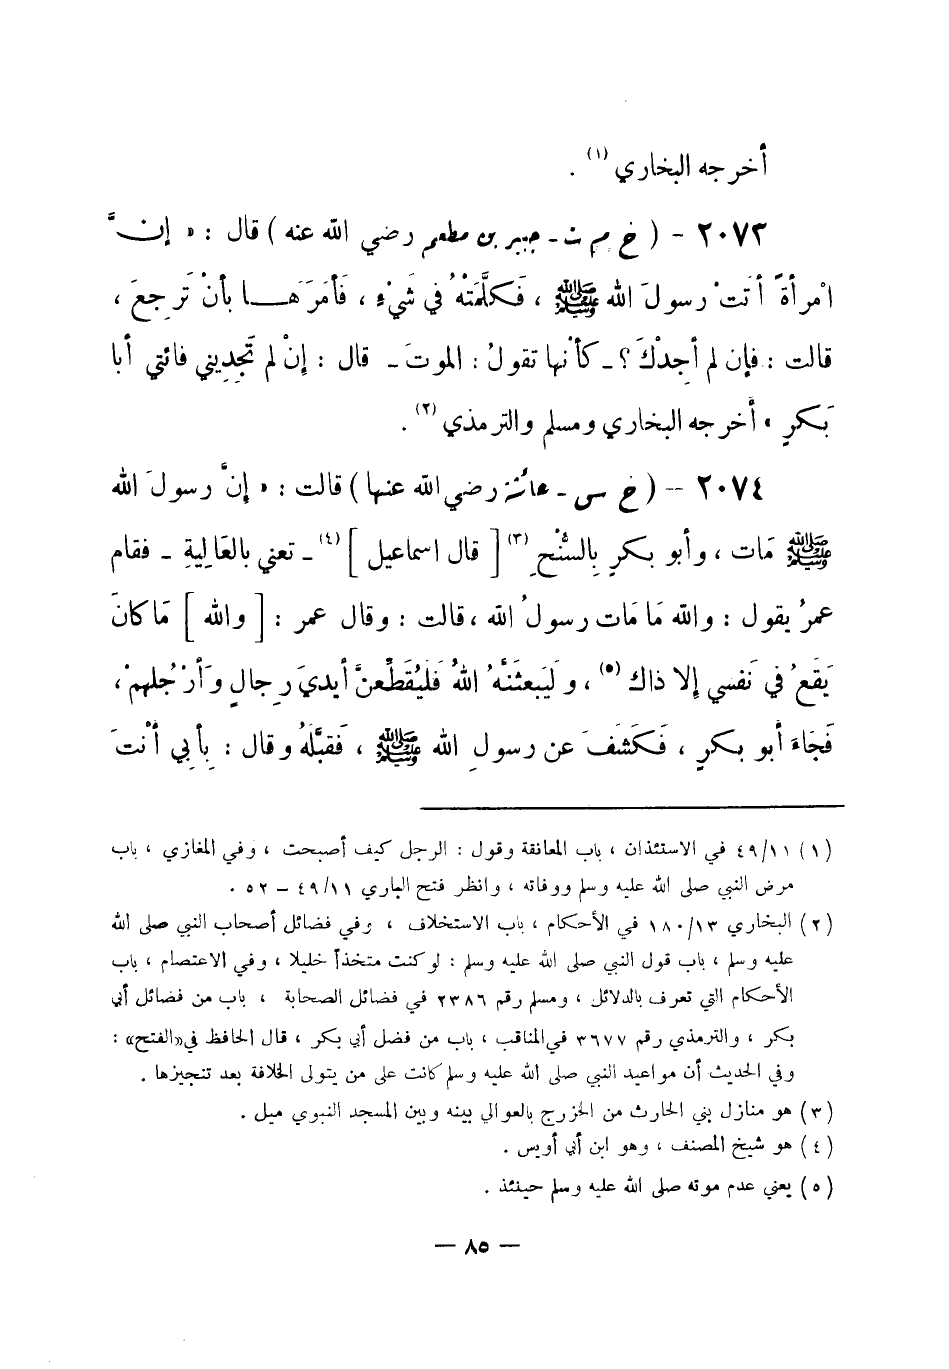 أخرجه البخاري (١) .
٢٠٧٣ - ( خ م ت - جبير بن مطعم رضي الله عنه ) قال : « إنَّ
امْرأةً أتَتْ رسولَ الله ﷺ ، فَكلَّمَتْهُ في شَيْءٍ ، فَأمَرَهَا بأنْ تَرجِعَ ،
قالت : فإن لم أجِدْكَ ؟ - كأنها تقولُ : الموتَ - قال : إنْ لم تَجِديني فائتي أبا
بَكرٍ » أخرجه البخاري ومسلم والترمذي (٢) .
٢٠٧٤ - ( خ س - عائشة رضي الله عنها ) قالت : « إنَّ رسولَ الله
ﷺ مَات ، وأبو بكرٍ بِالسُّنْحِ (٣) [ قال اسماعيل ] (٤) - تعني بالعَاليةِ - فقام
عمرُ يقول : والله مَا مَات رسولُ الله ، قالت : وقال عمر : [ والله ] مَا كانَ
يَقَعُ في نَفسي إلا ذاك (٥) ، ولَيَبعثَنَّهُ اللهُ فَلَيُقَطِّعنَّ أيديَ رجالٍ وَأرْجُلهمْ ،
فَجَاءَ أبو بكرٍ ، فَكشَفَ عن رسولِ الله ﷺ ، فَقبَّلَهُ وقال : بِأبي أنْتَ
(١) ٤٩/١١ في الاستئذان ، باب المعانقة وقول : الرجل كيف أصبحت ، وفي المغازي ، باب
مرض النبي صلى الله عليه وسلم ووفاته ، وانظر فتح الباري ٤٩/١١ - ٥٢ .
(٢) البخاري ١٨٠/١٣ في الأحكام ، باب الاستخلاف ، وفي فضائل أصحاب النبي صلى الله
عليه وسلم ، باب قول النبي صلى الله عليه وسلم : لو كنت متخذاً خليلا ، وفي الاعتصام ، باب
الأحكام التي تعرف بالدلائل ، ومسلم رقم ٢٣٨٦ في فضائل الصحابة ، باب من فضائل أبي
بكر ، والترمذي رقم ٣٦٧٧ في المناقب ، باب من فضل أبي بكر ، قال الحافظ في «الفتح» :
وفي الحديث أن مواعيد النبي صلى الله عليه وسلم كانت على من يتولى الخلافة بعد تنجيزها .
(٣) هو منازل بني الحارث من الخزرج بالعوالي بينه وبين المسجد النبوي ميل .
(٤) هو شيخ المصنف ، وهو ابن أبي أويس .
(٥) يعني عدم موته صلى الله عليه وسلم حينئذ .
— ٨٥ —